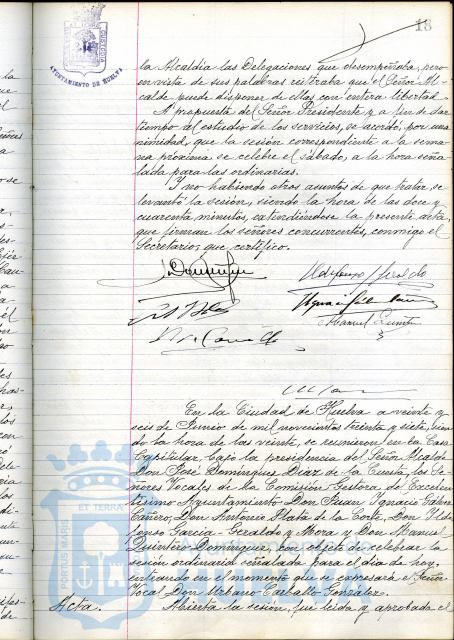 13
AYUNTAMIENTO DE HUELVA
la Alcaldía las Delegaciones que desempeñaba, pero
en vista de sus palabras reiteraba que el Señor Al-
calde puede disponer de ellas con entera libertad.
A propuesta del Señor Presidente y a fin de dar
tiempo al estudio de los servicios, se acordó, por una-
nimidad, que la sesión correspondiente a la sema-
na próxima se celebre el sábado, a la hora seña-
lada para las ordinarias.
Y no habiendo otros asuntos de que tratar, se
levantó la sesión, siendo la hora de las doce y
cuarenta minutos, extendiéndose la presente acta,
que firman los señores concurrentes, conmigo el
Secretario, que certifico.
Manuel
En la Ciudad de Huelva a veinte y
seis de Junio de mil novecientos treinta y siete, sien-
do la hora de las veinte, se reunieron en la Casa
Capitular bajo la presidencia del Señor Alcalde
Don José Domínguez Díaz de la Cuesta, los Se-
ñores Vocales de la Comisión Gestora del Excelen-
tísimo Ayuntamiento Don Juan Ignacio Gálvez
Cañero, Don Antonio Plata de la Corte, Don Ilde-
fonso García-Geraldo y Mora y Don Manuel
Quintero Domínguez, con objeto de celebrar la
sesión ordinaria señalada para el día de hoy,
entrando en el momento que se expresará el Señor
Vocal Don Urbano Carballo González.
Acta. Abierta la sesión, fué leída y aprobada el
PORTUS MARIS ET TERRA